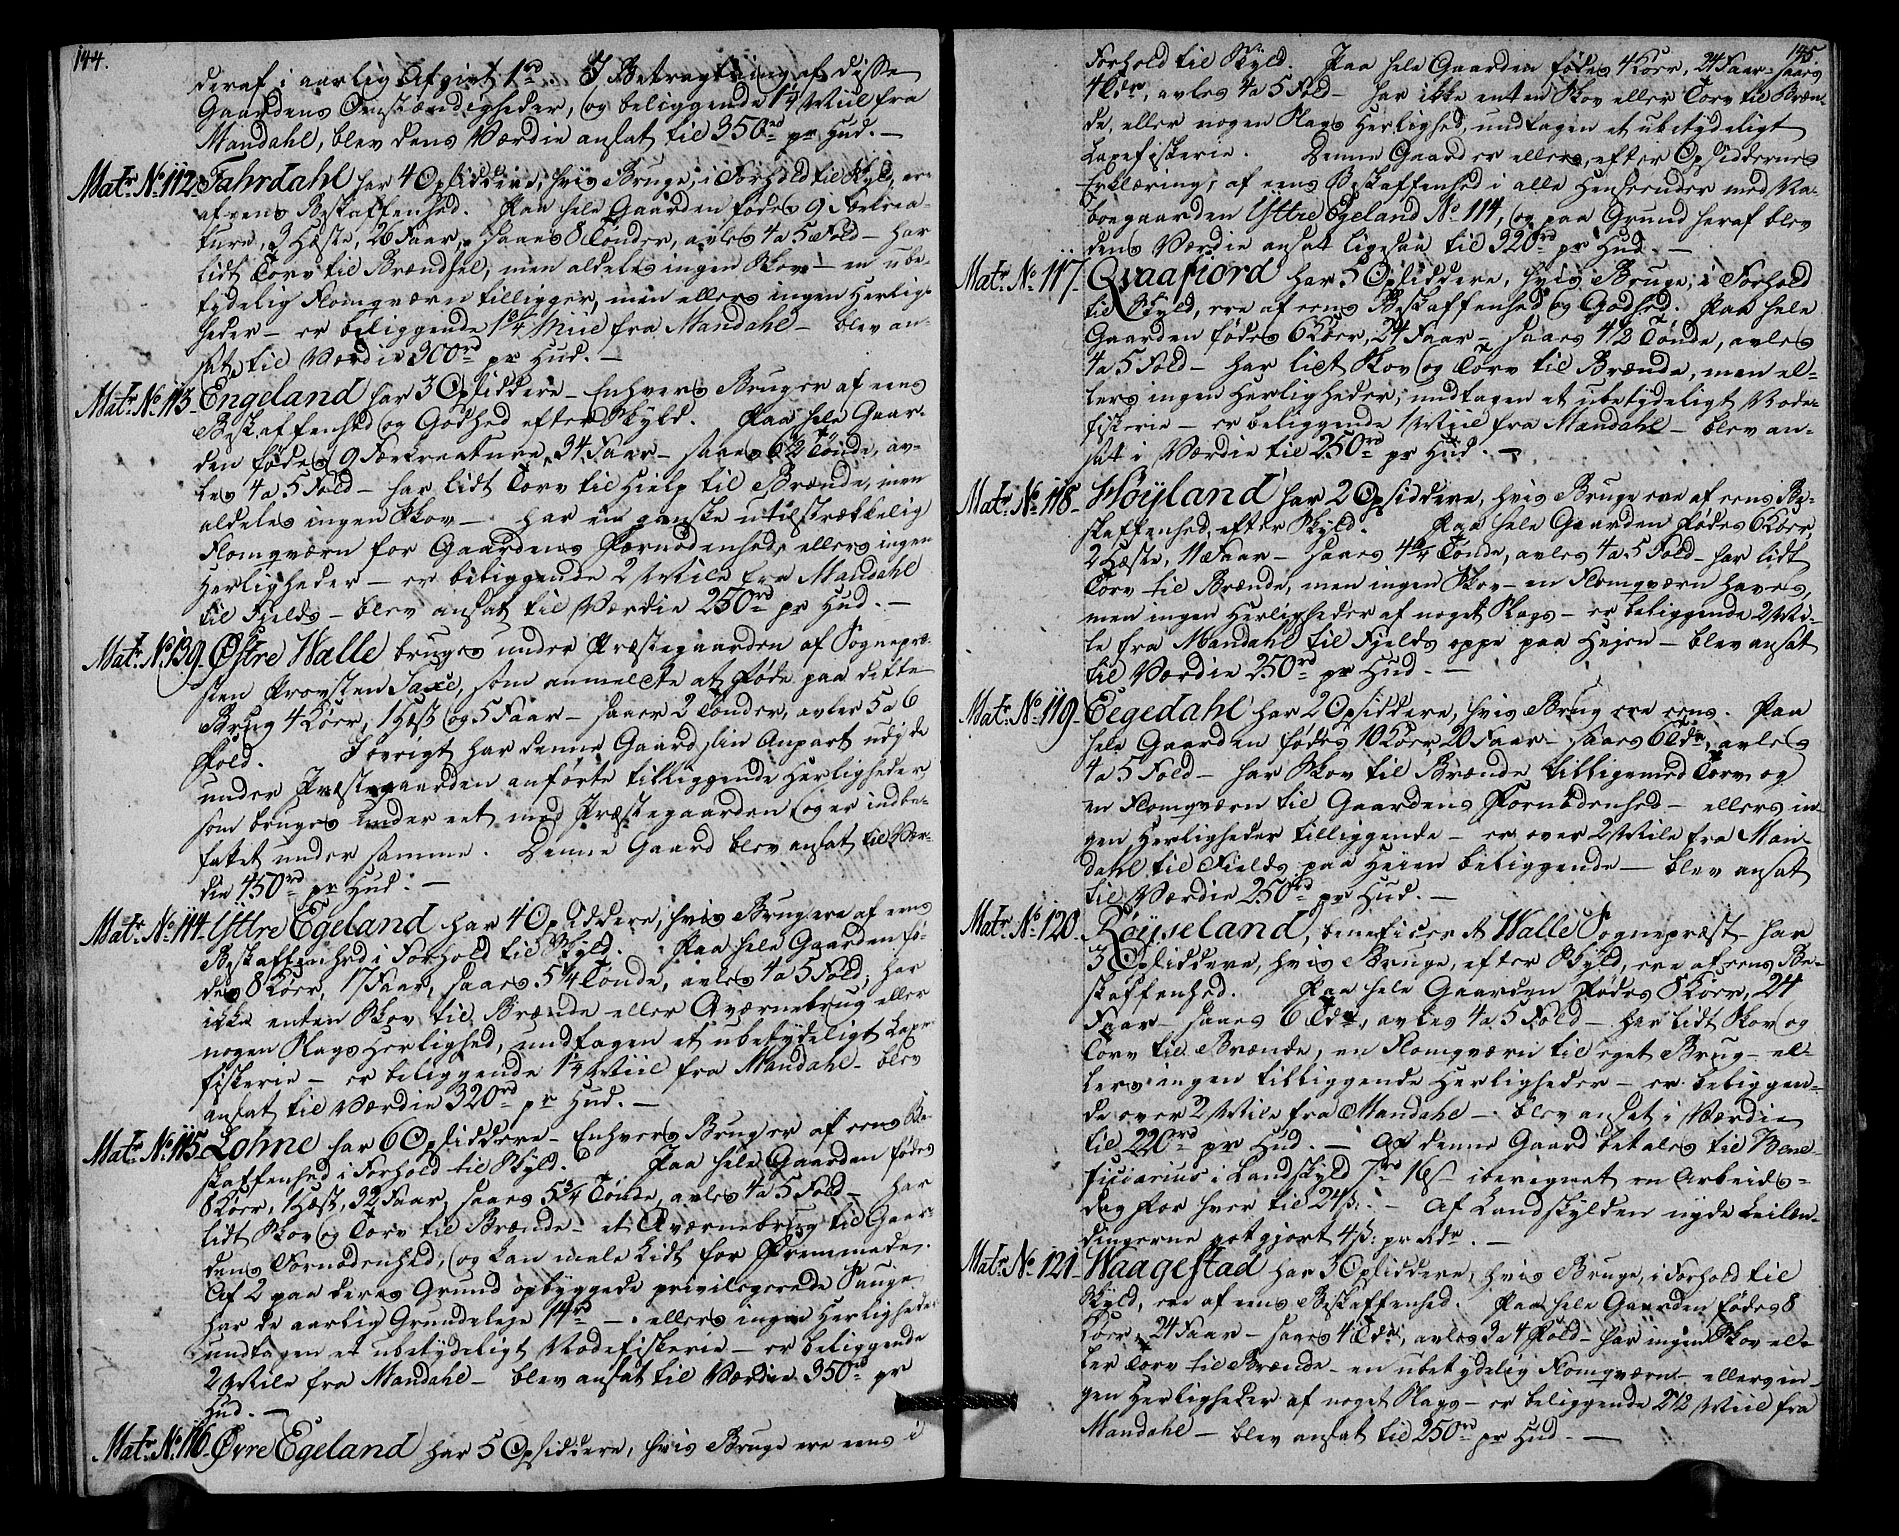 144.
deraf i aarlig Afgivt 1rd. I Betragtning af disse
Gaardens Omstændigheder, og beliggende 1¼ Miil fra
Mandahl, blev dens Værdie ansat til 350rd pr Hud. —
Matr. No. 112. Fahrdahl har 4 Opsiddere, hvis Bruge, i Forhold til Skyld, er
af eens Beskaffenhed. Paa hele Gaarden fødes 9 Fækrea-
ture, 3 Hæste, 26 Faar, saaes 8 Tønder, avles 4 a 5 Fold — har
lidt Torv til Brændsel, men aldeles ingen Skov — en ube-
tydelig Flomqværn tilligger, men ellers ingen Herlig-
heder — er beliggende 1¾ Miil fra Mandahl — blev an-
sat til Værdie 300rd pr Hud. —
Matr. No. 113. Engeland har 3 Opsiddere — Enhvers Brug er af eens
Beskaffenhed og Godhed efter Skyld. Paa hele Gaar-
den fødes 9 Fækreature, 34 Faar — saaes 6½ Tønde, av-
les 4 a 5 Fold — har lidt Torv til Hielp til Brænde, men
aldeles ingen Skov — har en ganske utilstrækkelig
Flomqværn for Gaardens Fornødenhed, ellers ingen
Herligheder — er beliggende 2 Mile fra Mandahl
til Fjelds — blev ansat til Værdie 250rd pr Hud. —
Matr. No. 139. Østre Walle bruges under Præstegaarden af Sognepræ-
sten Provsten Saxe, som anmeldte at føde paa dette
Brug 4 Køer, 1 Hæst og 5 Faar — saaer 3 Tønder, avler 5 a 6
Fold. Iøvrigt har denne Gaard sin Anpart udi de
under Præstegaarden anførte tilliggende Herligheder
som bruges under eet med Præstegaarden og er indbe-
fattet under samme. Denne Gaard blev ansat til Vær-
die 450rd pr Hud. —
Matr. No. 114. Yttre Egeland har 4 Opsiddere, hvis Brug ere af eens
Beskaffenhed i Forhold til Skyld. Paa hele Gaarden fø-
des 8 Køer, 17 Faar, saaes 5¼ Tønde, avles 4 a 5 Fold, har
ikke enten Skov til Brænde eller Qværnebrug eller
nogen Slags Herlighed, undtagen et ubetydeligt Laxe-
fiskerie — er beliggende 1¼ Miil fra Mandahl — blev
ansat til Værdie 320rd pr Hud. —
Matr. No. 115. Lohne har 6 Opsiddere — Enhvers Brug er af eens Be-
skaffenhed i Forhold til Skyld. Paa hele Gaarden fødes
8 Køer, 1 Hæst, 32 Faar, saaes 5¾ Tønde, avles 4 a 5 Fold — har
lidt Skov og Torv til Brænde — et Qværnebrug til Gaar-
dens Fornødenhed, og kan male lidt for Fremmede.
Af 2 paa deres Grund opbyggede privilegerede Sauge
har de aarlig Grundeleje 14rd — . ellers ingen Herligheder
undtagen et ubetydeligt Nodefiskerie — er beliggende
2 Mile fra Mandahl — blev ansat til Værdie 350rd pr
Hud. —
Matr. No. 116. Øvre Egeland har 5 Opsiddere, hvis Bruge ere eens i
145.
Forhold til Skyld. Paa hele Gaarden fødes 4 Køer, 24 Faar — saaes
4 Tdr, avles 4 a 5 Fold — har ikke enten Skov eller Torv til Bræn-
de, eller nogen Slags Herlighed, undtagen et ubetydeligt
Laxefiskerie. Denne Gaard er ellers, efter Opsiddernes
Erklæring, af eens Beskaffenhed i alle Henseender med Na-
boegaarden Yttre Egeland No. 114, og paa Grund heraf blev
dens Værdie ansat ligesaa til 320rd pr Hud. —
Matr. No. 117. Qvaafiord har 3 Opsiddere, hvis Bruge, i Forhold
til Skyld, ere af eens Beskaffenhed og Godhed. Paa hele
Gaarden fødes 6 Køer, 24 Faar — saaes 4½ Tønde, avles
4 a 5 Fold — har lidt Skov og Torv til Brænde, men el-
lers ingen Herligheder, undtagen et ubetydeligt Node-
fiskerie — er beliggende 1 Miil fra Mandahl — blev an-
sat i Værdie til 250rd pr Hud. —
Matr. No. 118. Høyland har 2 Opsiddere, hvis Bruge ere af eens Be-
skaffenhed, efter Skyld. Paa hele Gaarden fødes 6 Køer,
2 Hæste, 11 Faar — saaes 4¾ Tønde, avles 4 a 5 Fold — har lidt
Torv til Brænde, men ingen Skov — en Flomqværn haves,
men ingen Herligheder af noget Slags — er beliggende 2 Mi-
le fra Mandahl til Fjelds oppe paa Hejen — blev ansat
til Værdie 250rd pr Hud. —
Matr. No. 119. Eegedahl har 2 Opsiddere, hvis Brug ere eens. Paa
hele Gaarden fødes 10 Køer, 20 Faar — saaes 6 Tdr, avles
4 a 5 Fold — har Skov til Brænde tilligemed Torv, og
en Flomqværn til Gaardens Fornødenhed — ellers in-
gen Herligheder tilliggende — er over 2 Mile fra Man-
dahl til Fields paa Heien beliggende — blev ansat
til Værdie 250rd pr Hud. —
Matr. No. 120. Røyseland, beneficeret Walle Sognepræst — har
3 Opsiddere, hvis Bruge, efter Skyld, ere af eens Be-
skaffenhed. Paa hele Gaarden fødes 8 Køer, 24
Faar — saaes 6 Tdr, avles 4 a 5 Fold — har lidt Skov og
Torv til Brænde, en Flomqværn til eget Brug — el-
lers ingen tilliggende Herligheder — er beliggen-
de over 2 Mile fra Mandahl — blev ansat i Værdie
til 220rd pr Hud. — Af denne Gaard betales til Bene-
ficiarius i Landskyld 7rd 16ß — iberegnet en Arbeids-
dag for hver til 24ß. — Af Landskylden nyde Leilæn-
dingerne godtgjort 4ß: pr Rdr. —
Matr. No. 121. Waagestad har 3 Opsiddere, hvis Bruge, i Forhold til
Skyld, ere af eens Beskaffenhed. Paa hele Gaarden fødes 8
Køer, 24 Faar — saaes 4 Tdr, avles 3 a 4 Fold — har ingen Skov el-
ler Torv til Brænde — en ubetydelig Flomqværn — ellers in-
gen Herligheder af noget Slags — er beliggende 2½ Miil fra
Mandahl — blev ansat til 250rd pr Hud. —